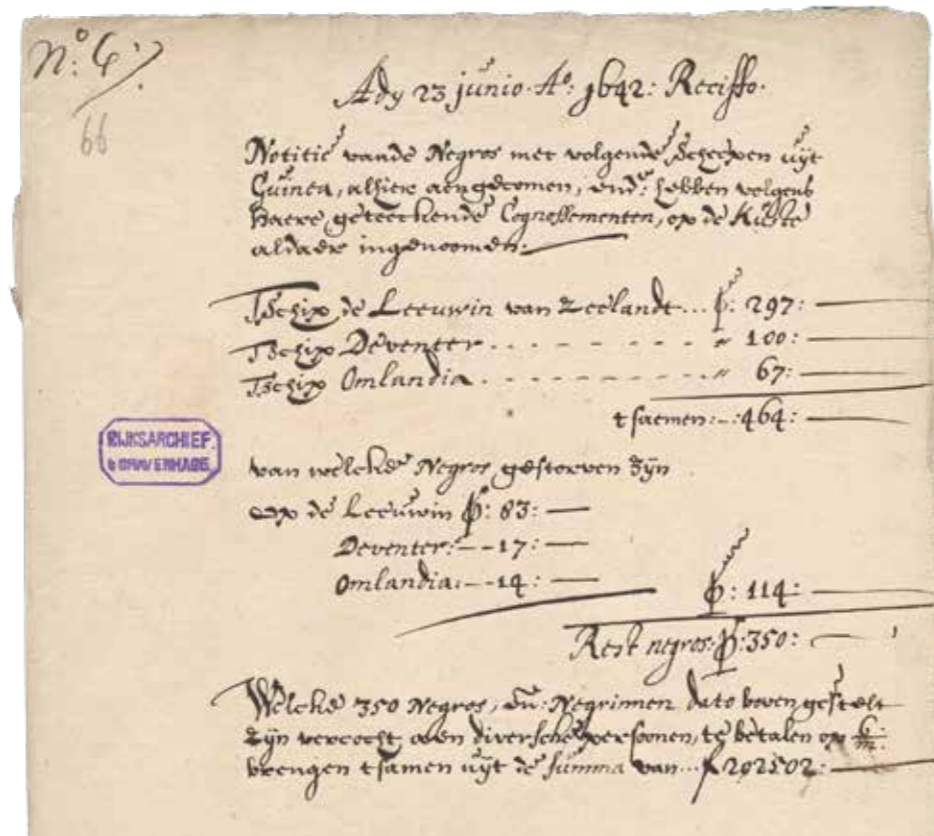 N:o 6:
66
Ady 23 junio. Ao: 1642: Reciffo.
Notitie vande Negros met volgende Scheepen uÿt
Guinea, alhier aengecomen, ende: hebben volgens
haere geteeckende Cognossementen, op de Kuste
aldaer ingenoomen:
Tschip de Leeuwin van Zeelandt... p: 297:
Tschip Deventer - - - - - - " 100:
Tschip Omlandia - - - - - - " 67:
tsaemen:-:464:
RIJKSARCHIEF
s GRAVENHAGE
van welcke Negros gestorven zÿn
op de Leeuwin p: 83:
Deventer:--17:
Omlandia:--14: p: 114:
Rest negros p:350:
Welcke 350 Negros, en: Negrinnen dato boven gestelt
zÿn vercocht aen diversche persoonen, te betalen op 6/m:
brengen tsamen uÿt de summa van... 292502: